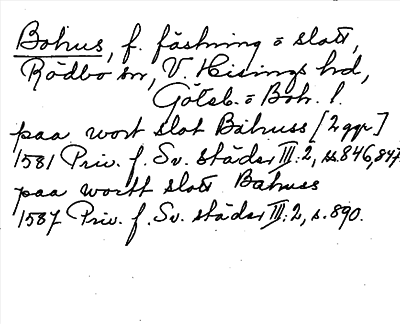 Bohus, f. fästning o slott,
Rödbo sn, V. Hisings hd,
Göteb. o Boh. l.
paa wort slot Båhuss [2 ggr]
1581 Priv. f. Sv. städer III:2, ss. 846, 847.
paa wortt slott Bahuss
1587 Priv. f. Sv. städer III:2, s. 890.